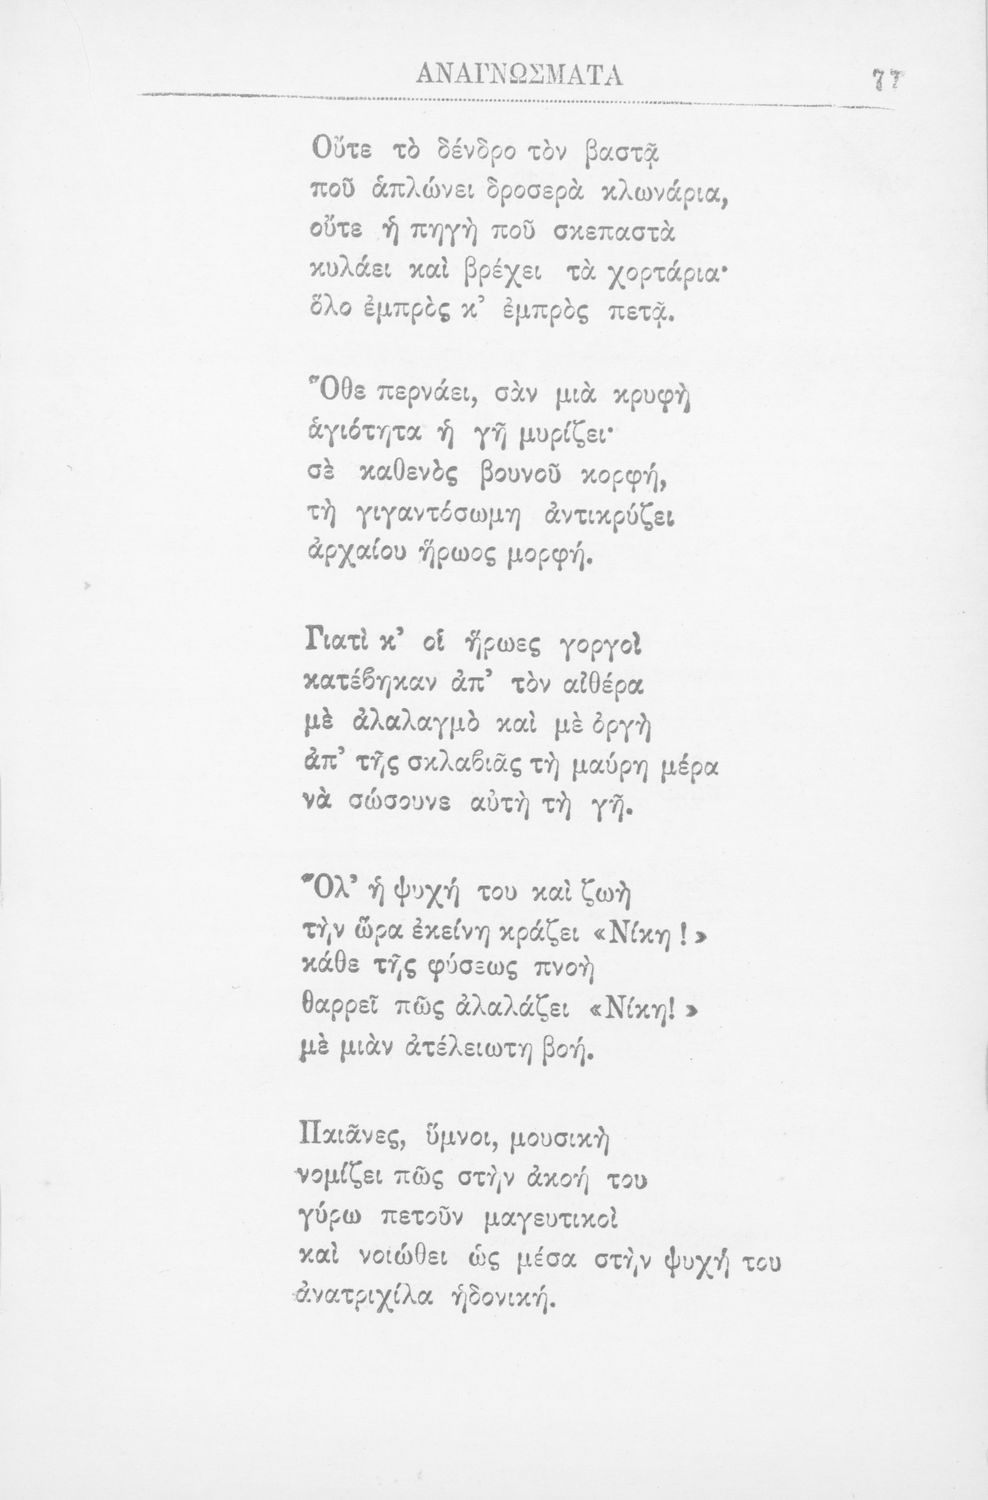 ΑΝΑΓΝΩΣΜΑΤΑ 77
Οὔτε τὸ δένδρο τὸν βαστᾷ
ποῦ ἁπλώνει δροσερὰ κλωνάρια,
οὔτε ἡ πηγὴ ποῦ σκεπαστὰ
κυλάει καὶ βρέχει τὰ χορτάρια·
ὅλο ἐμπρὸς κ’ ἐμπρὸς πετᾷ.
Ὅθε περνάει, σὰν μιὰ κρυφὴ
ἁγιότητα ἡ γῆ μυρίζει·
σὲ καθενὸς βουνοῦ κορφή,
τὴ γιγαντόσωμη ἀντικρύζει
ἀρχαίου ἥρωος μορφή.
Γιατὶ κ’ οἱ ἥρωες γοργοὶ
κατέϐηκαν ἀπ’ τὸν αἰθέρα
μὲ ἀλαλαγμὸ καὶ μὲ ὀργὴ
ἀπ’ τῆς σκλαϐιᾶς τὴ μαύρη μέρα
νὰ σώσουνε αὐτὴ τὴ γῆ.
Ὅλ’ ἡ ψυχή του καὶ ζωὴ
τὴν ὥρα ἐκείνη κράζει «Νίκη !»
κάθε τῆς φύσεως πνοὴ
θαρρεῖ πῶς ἀλαλάζει «Νίκη! »
μὲ μιὰν ἀτέλειωτη βοή.
Παιᾶνες, ὕμνοι, μουσικὴ
νομίζει πῶς στὴν ἀκοή του
γύρω πετοῦν μαγευτικοὶ
καὶ νοιώθει ὡς μέσα στὴν ψυχή του
ἀνατριχίλα ἡδονική.